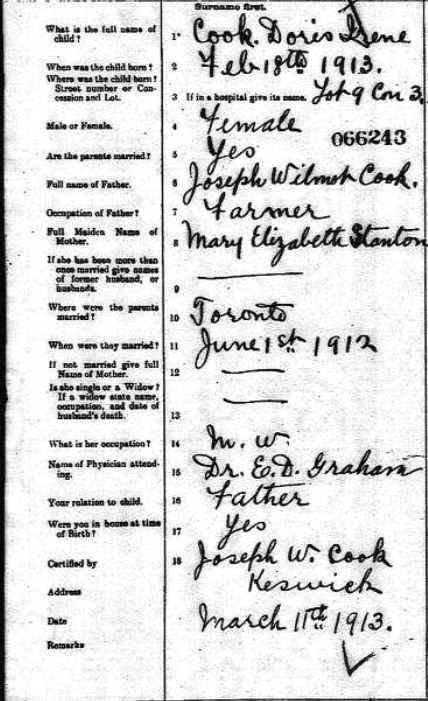 Surname first.
What is the full name of child? 1 Cook. Doris Irene
When was the child born? 2 Feb 18th 1913.
Where was the child born? Street number or Concession and Lot. 3 If in a hospital give its name. Lot 9 Con 3.
Male or Female. 4 Female
066243
Are the parents married? 5 Yes
Full name of Father. 6 Joseph Wilmot Cook.
Occupation of Father? 7 Farmer
Full Maiden Name of Mother. 8 Mary Elizabeth Stanton
If she has been more than once married give names of former husband, or husbands. 9 ——
Where were the parents married? 10 Toronto
When were they married? 11 June 1st 1912
If not married give full Name of Mother. 12 ——
Is she single or a Widow? If a widow state name, occupation, and date of husband's death. 13 ——
What is her occupation? 14 M. W.
Name of Physician attending. 15 Dr. E. D. Graham
Your relation to child. 16 Father
Were you in house at time of Birth? 17 Yes
Certified by 18 Joseph W. Cook
Address Keswick
Date March 11th 1913.
Remarks